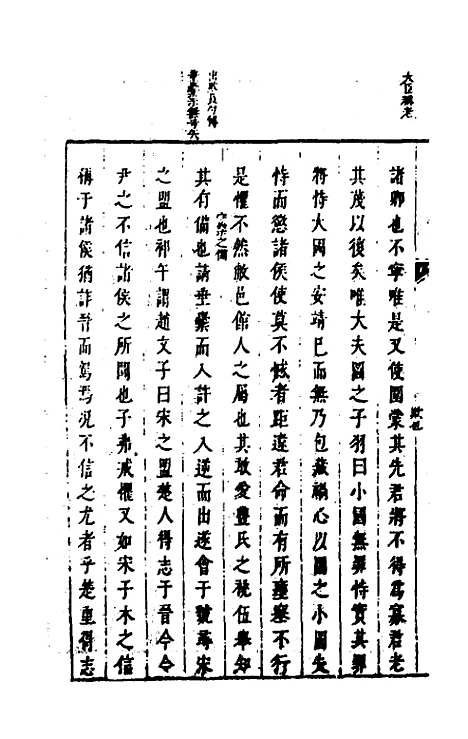 大臣稱老
諸卿也不寧唯是又使圍蒙其先君將不得爲寡君老
其蔑以復矣唯大夫圖之子羽曰小國無罪恃實其罪
將恃大國之安靖已而無乃包藏禍心以圖之小國失
恃而懲諸侯使莫不憾者距違君命而有所壅塞不行
是懼不然敝邑館人之屬也其敢愛豐氏之祧伍舉知
其有備也請垂櫜而入許之入逆而出遂會于虢尋宋
之盟也祁午謂趙文子曰宋之盟楚人得志于晉今令
尹之不信諸侯之所聞也子弗戒懼又如宋子木之信
稱于諸侯猶詐晉而駕焉况不信之尤者乎楚重得志